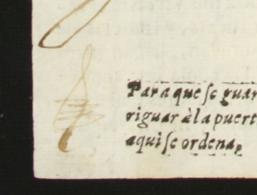 Para que ſe guar
riguar à la puert
aqui ſe ordena,